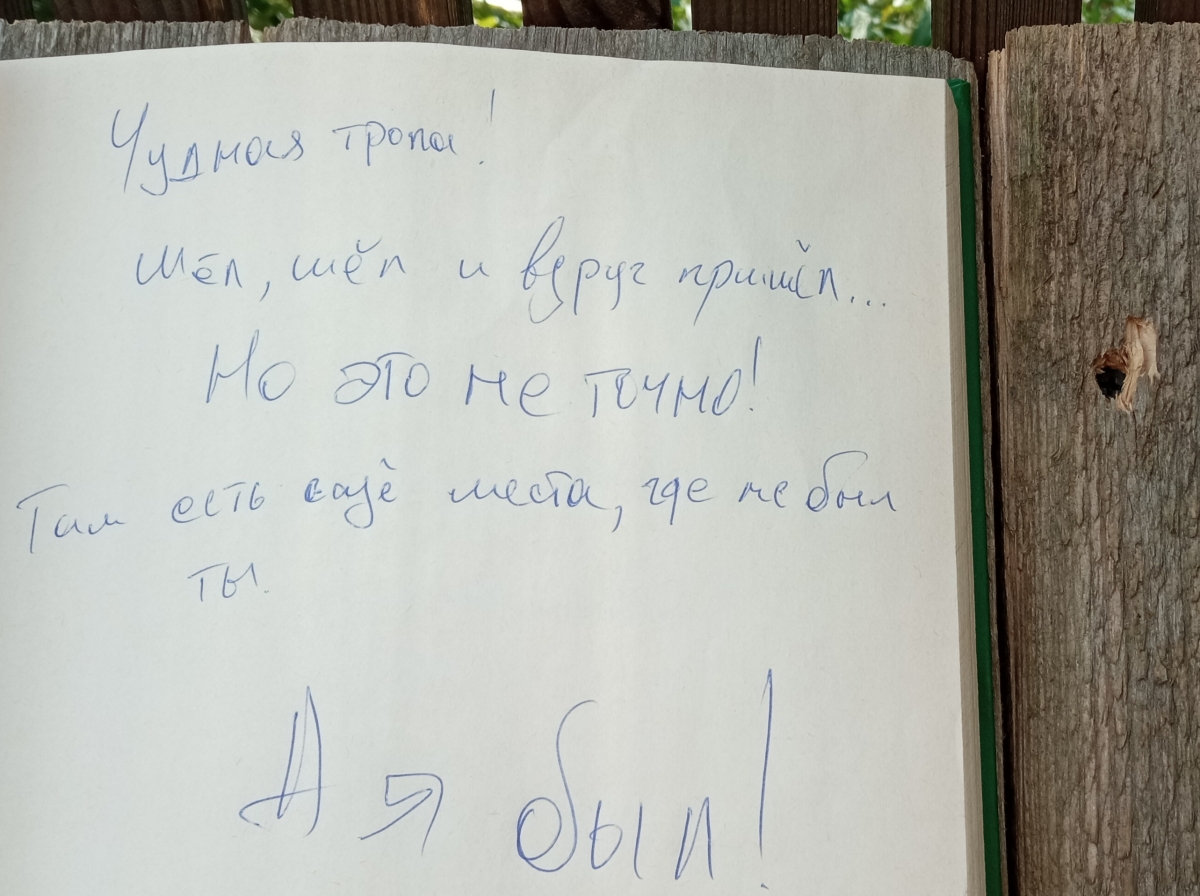 Чудная тропа!
Шёл, шёл и вдруг пришёл...
Но это не точно!
Там есть ещё места, где не был
ты.
А я был!